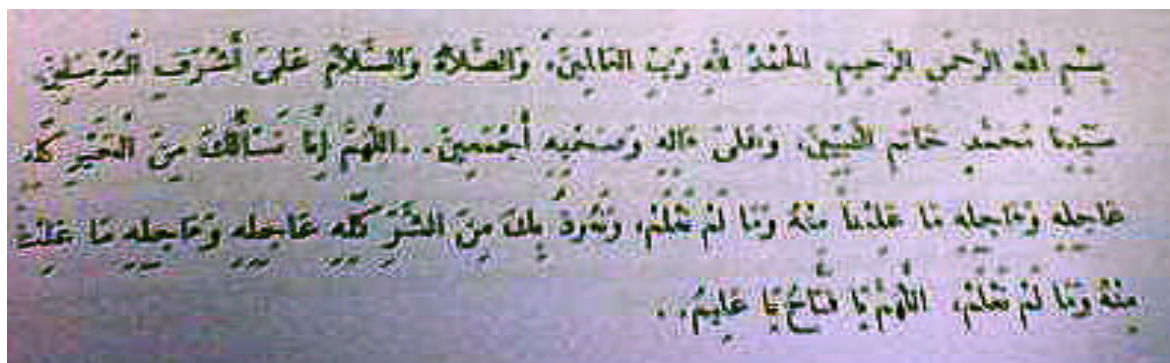 بِسْمِ اللهِ الرَّحْمٰنِ الرَّحِيمِ، الحَمْدُ للهِ رَبِّ العَالَمِينَ، وَالصَّلَاةُ وَالسَّلَامُ عَلَىٰ أَشْرَفِ الْمُرْسَلِينَ
سَيِّدِنَا مُحَمَّدٍ خَاتَمِ النَّبِيِّينَ، وَعَلَىٰ ءَالِهِ وَصَحْبِهِ أَجْمَعِينَ.. اللَّهُمَّ إِنَّا نَسْأَلُكَ مِنَ الْخَيْرِ كُلِّهِ
عَاجِلِهِ وَءَاجِلِهِ مَا عَلِمْنَا مِنْهُ وَمَا لَمْ نَعْلَمْ، وَنَعُوذُ بِكَ مِنَ الشَّرِّ كُلِّهِ عَاجِلِهِ وَءَاجِلِهِ مَا عَلِمْنَا
مِنْهُ وَمَا لَمْ نَعْلَمْ، اللَّهُمَّ يَا فَتَّاحُ يَا عَلِيمُ..